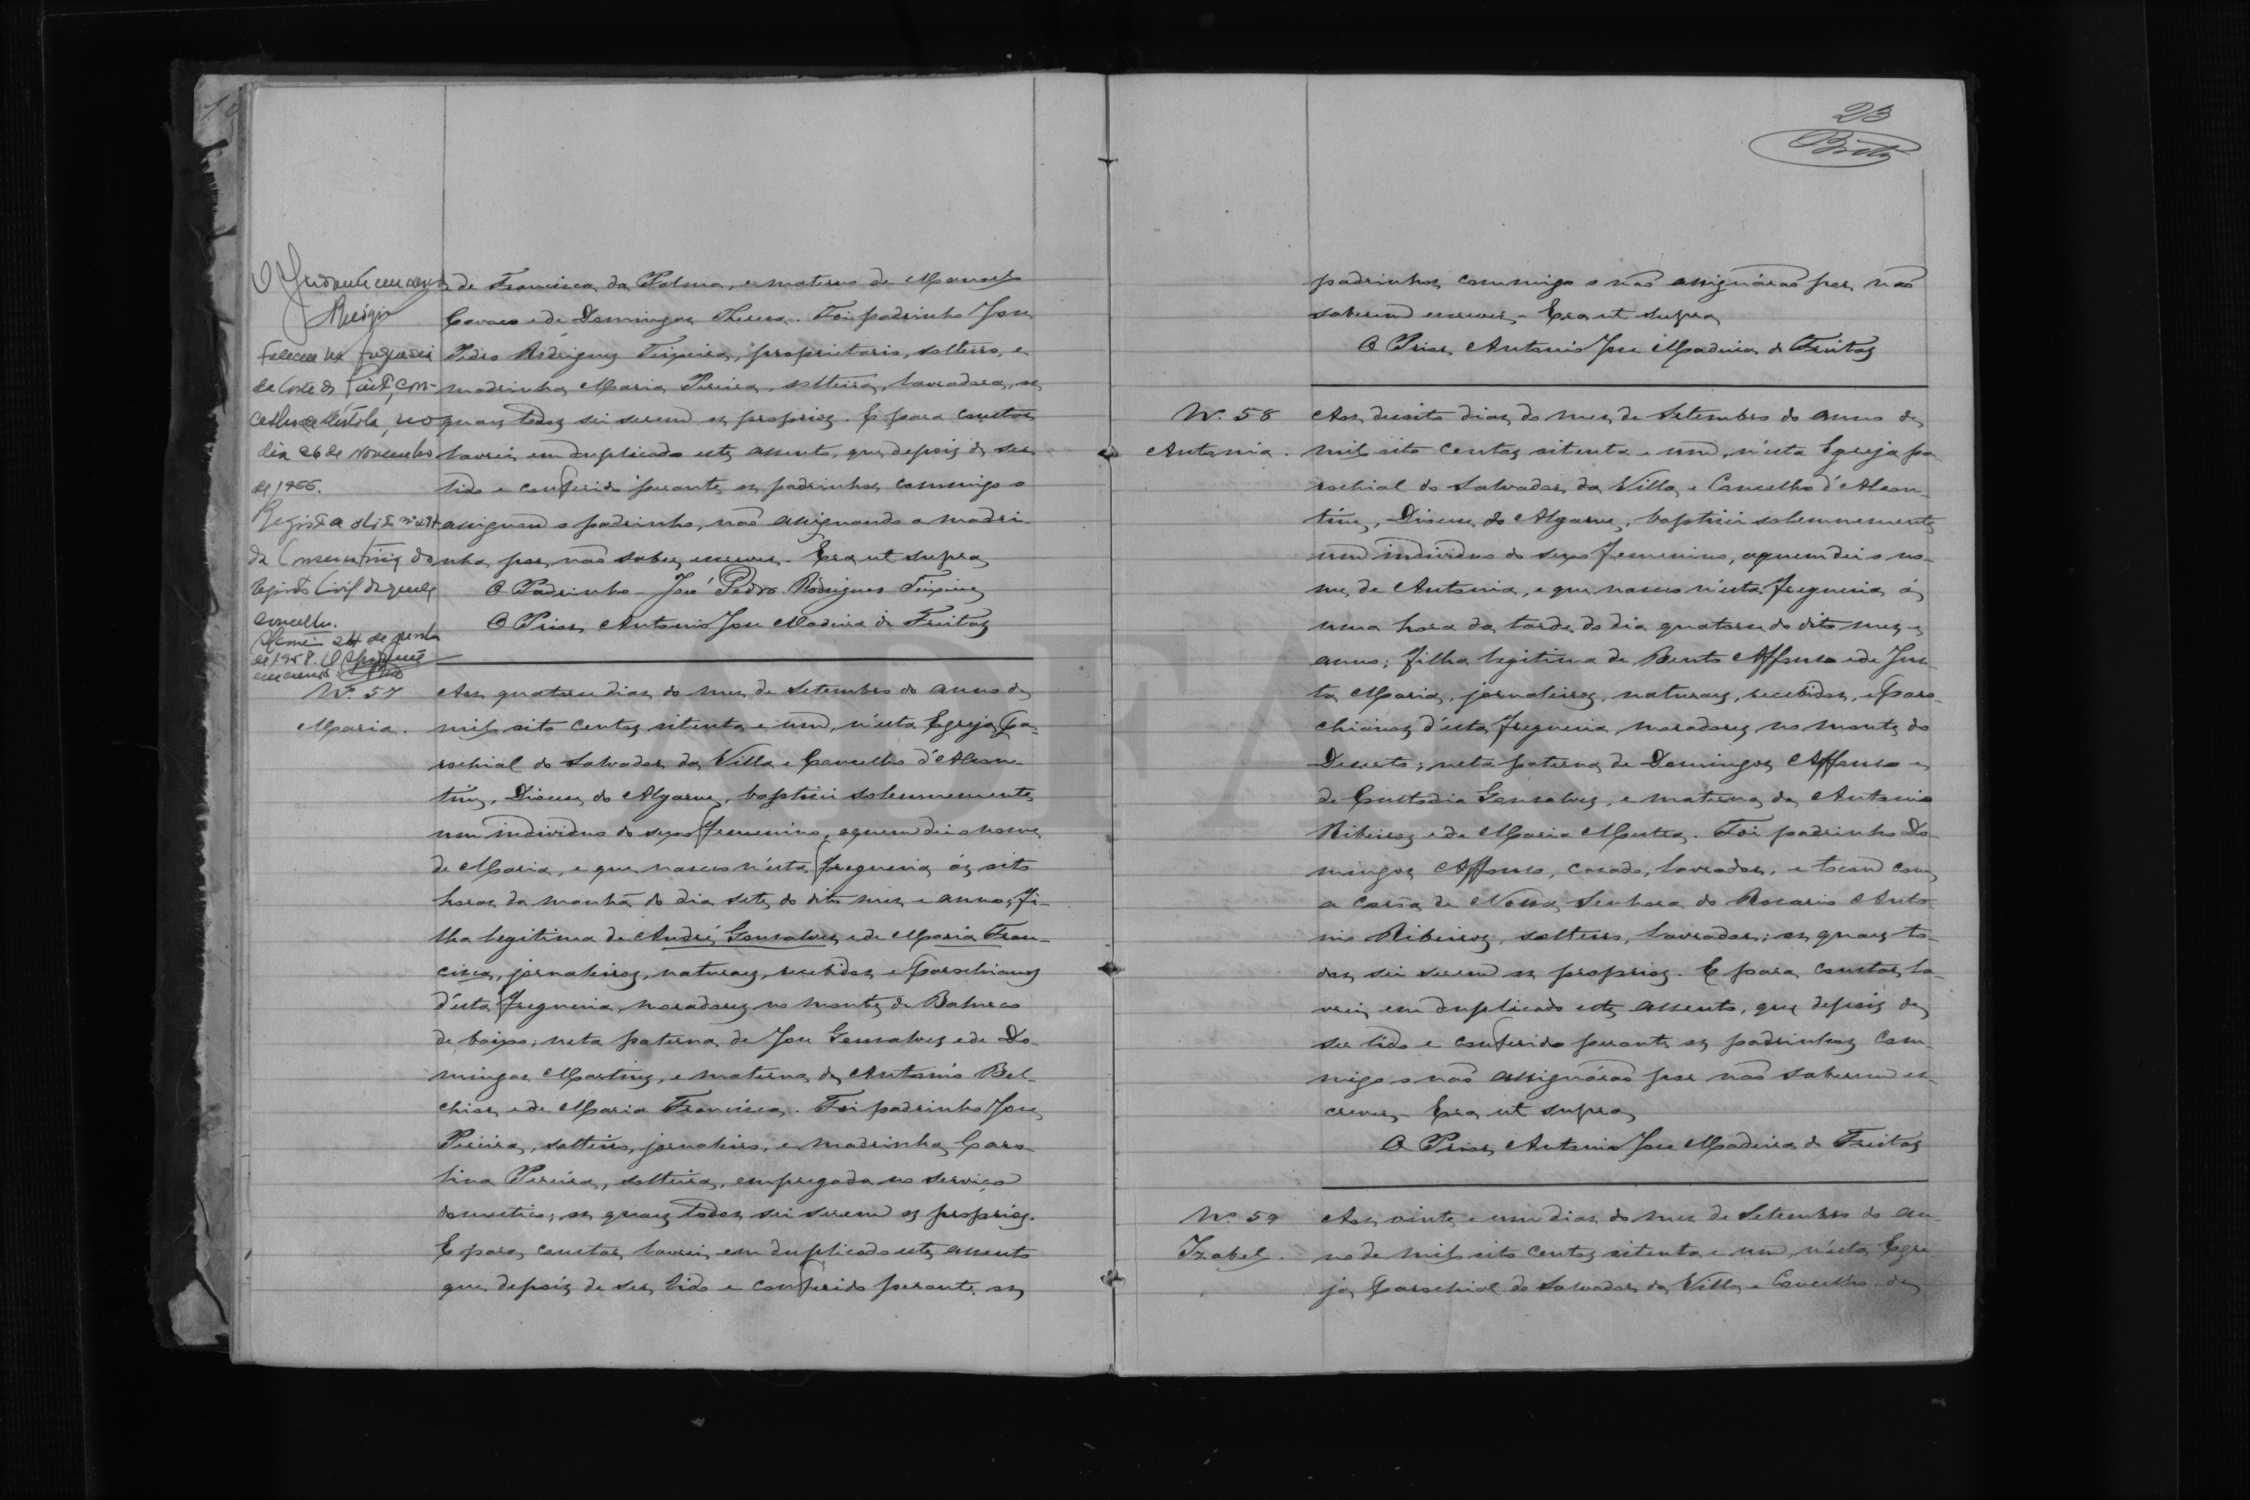 de Francisca da Palma, e materno de Manoel
Cavaco e de Domingas Thereza. Foi padrinho José
Pedro Rodrigues Teixeira, proprietario, solteiro, e
madrinha Maria Pereira, solteira, lavradora, os
quaes todos sei serem os proprios. E para constar
lavrei em duplicado este assento, que depois de ser
lido e conferido perante os padrinhos commigo o
assignou o padrinho, não assignando a madri-
nha por não saber escrever. Era ut supra
O Padrinho - José Pedro Rodrigues Teixeira
O Prior, Antonio José Madeira de Freitas
O Ajudante
Faleceu na freguesia
de Corte do Pinto, con-
celho de Mértola, no
dia 26 de novembro
de 1956.
Registo
da Conservatória do
Registo Civil daquele
concelho.
24 de junho
de 1958. O
Nº 57
Maria.
Aos quatorze dias do mez de Setembro do anno de
mil oito centos setenta e um, n'esta Egreja Pa-
rochial do Salvador da Villa e Concelho d'Alcou-
tim, Diocese do Algarve, baptisei solemnemente
um individuo do sexo femenino, a quem dei o nome
de Maria, e que nasceu n'esta freguezia ás oito
horas da manhã do dia sete do dito mez e anno, fi-
lha legitima de André Gonsalves e de Maria Fran-
cisca, jornaleiros, naturaes, recebidos e Parochianos
d'esta freguezia, moradores no monte de Balurco
de baixo; neta paterna de José Gonsalves e de Do-
mingas Martins, e materna de Antonio Bel-
chior e de Maria Francisca. Foi padrinho José
Pereira, solteiro, jornaleiro, e madrinha Caro-
lina Pereira, solteira, empregada no serviço
domestico; os quaes todos sei serem os proprios.
E para constar lavrei em duplicado este assento
que depois de ser lido e conferido perante os
23
padrinhos commigo o não assignárão por não
saberem escrever - Era ut supra
O Prior, Antonio José Madeira de Freitas
Nº 58
Antonia.
Aos dezoito dias do mez de Setembro do anno de
mil oito centos setenta e um, n'esta Egreja pa-
rochial do Salvador da Villa e Concelho d'Alcou-
tim, Diocese do Algarve, baptisei solemnemente
um individuo do sexo femenino, a quem dei o no-
me de Antonia, e que nasceu n'esta freguezia á
uma hora da tarde do dia quatorze do dito mez e
anno; filha legitima de Bento Affonso e de Jus-
ta Maria, jornaleiros, naturaes, recebidos, e Paro-
chianos d'esta freguezia moradores no monte do
Deserto; neta paterna de Domingos Affonso e
de Custodia Gonsalves, e materna de Antonio
Ribeiros e de Maria Mestra. Foi padrinho Do-
mingos Affonso, casado, lavrador, e tocou com
a corôa de Nossa Senhora do Rosario Anto-
nio Ribeiros, solteiro, lavrador; os quaes to-
dos sei serem os proprios. E para constar la-
vrei em duplicado este assento, que depois de
ser lido e conferido perante os padrinhos com-
migo o não assignárão por não saberem es-
crever - Era ut supra
O Prior, Antonio José Madeira de Freitas
Nº 59
Izabel.
Aos vinte e um dias do mez de Setembro do an-
no de mil oito centos setenta e um, n'esta Egre-
ja Parochial do Salvador da Villa e Concelho de